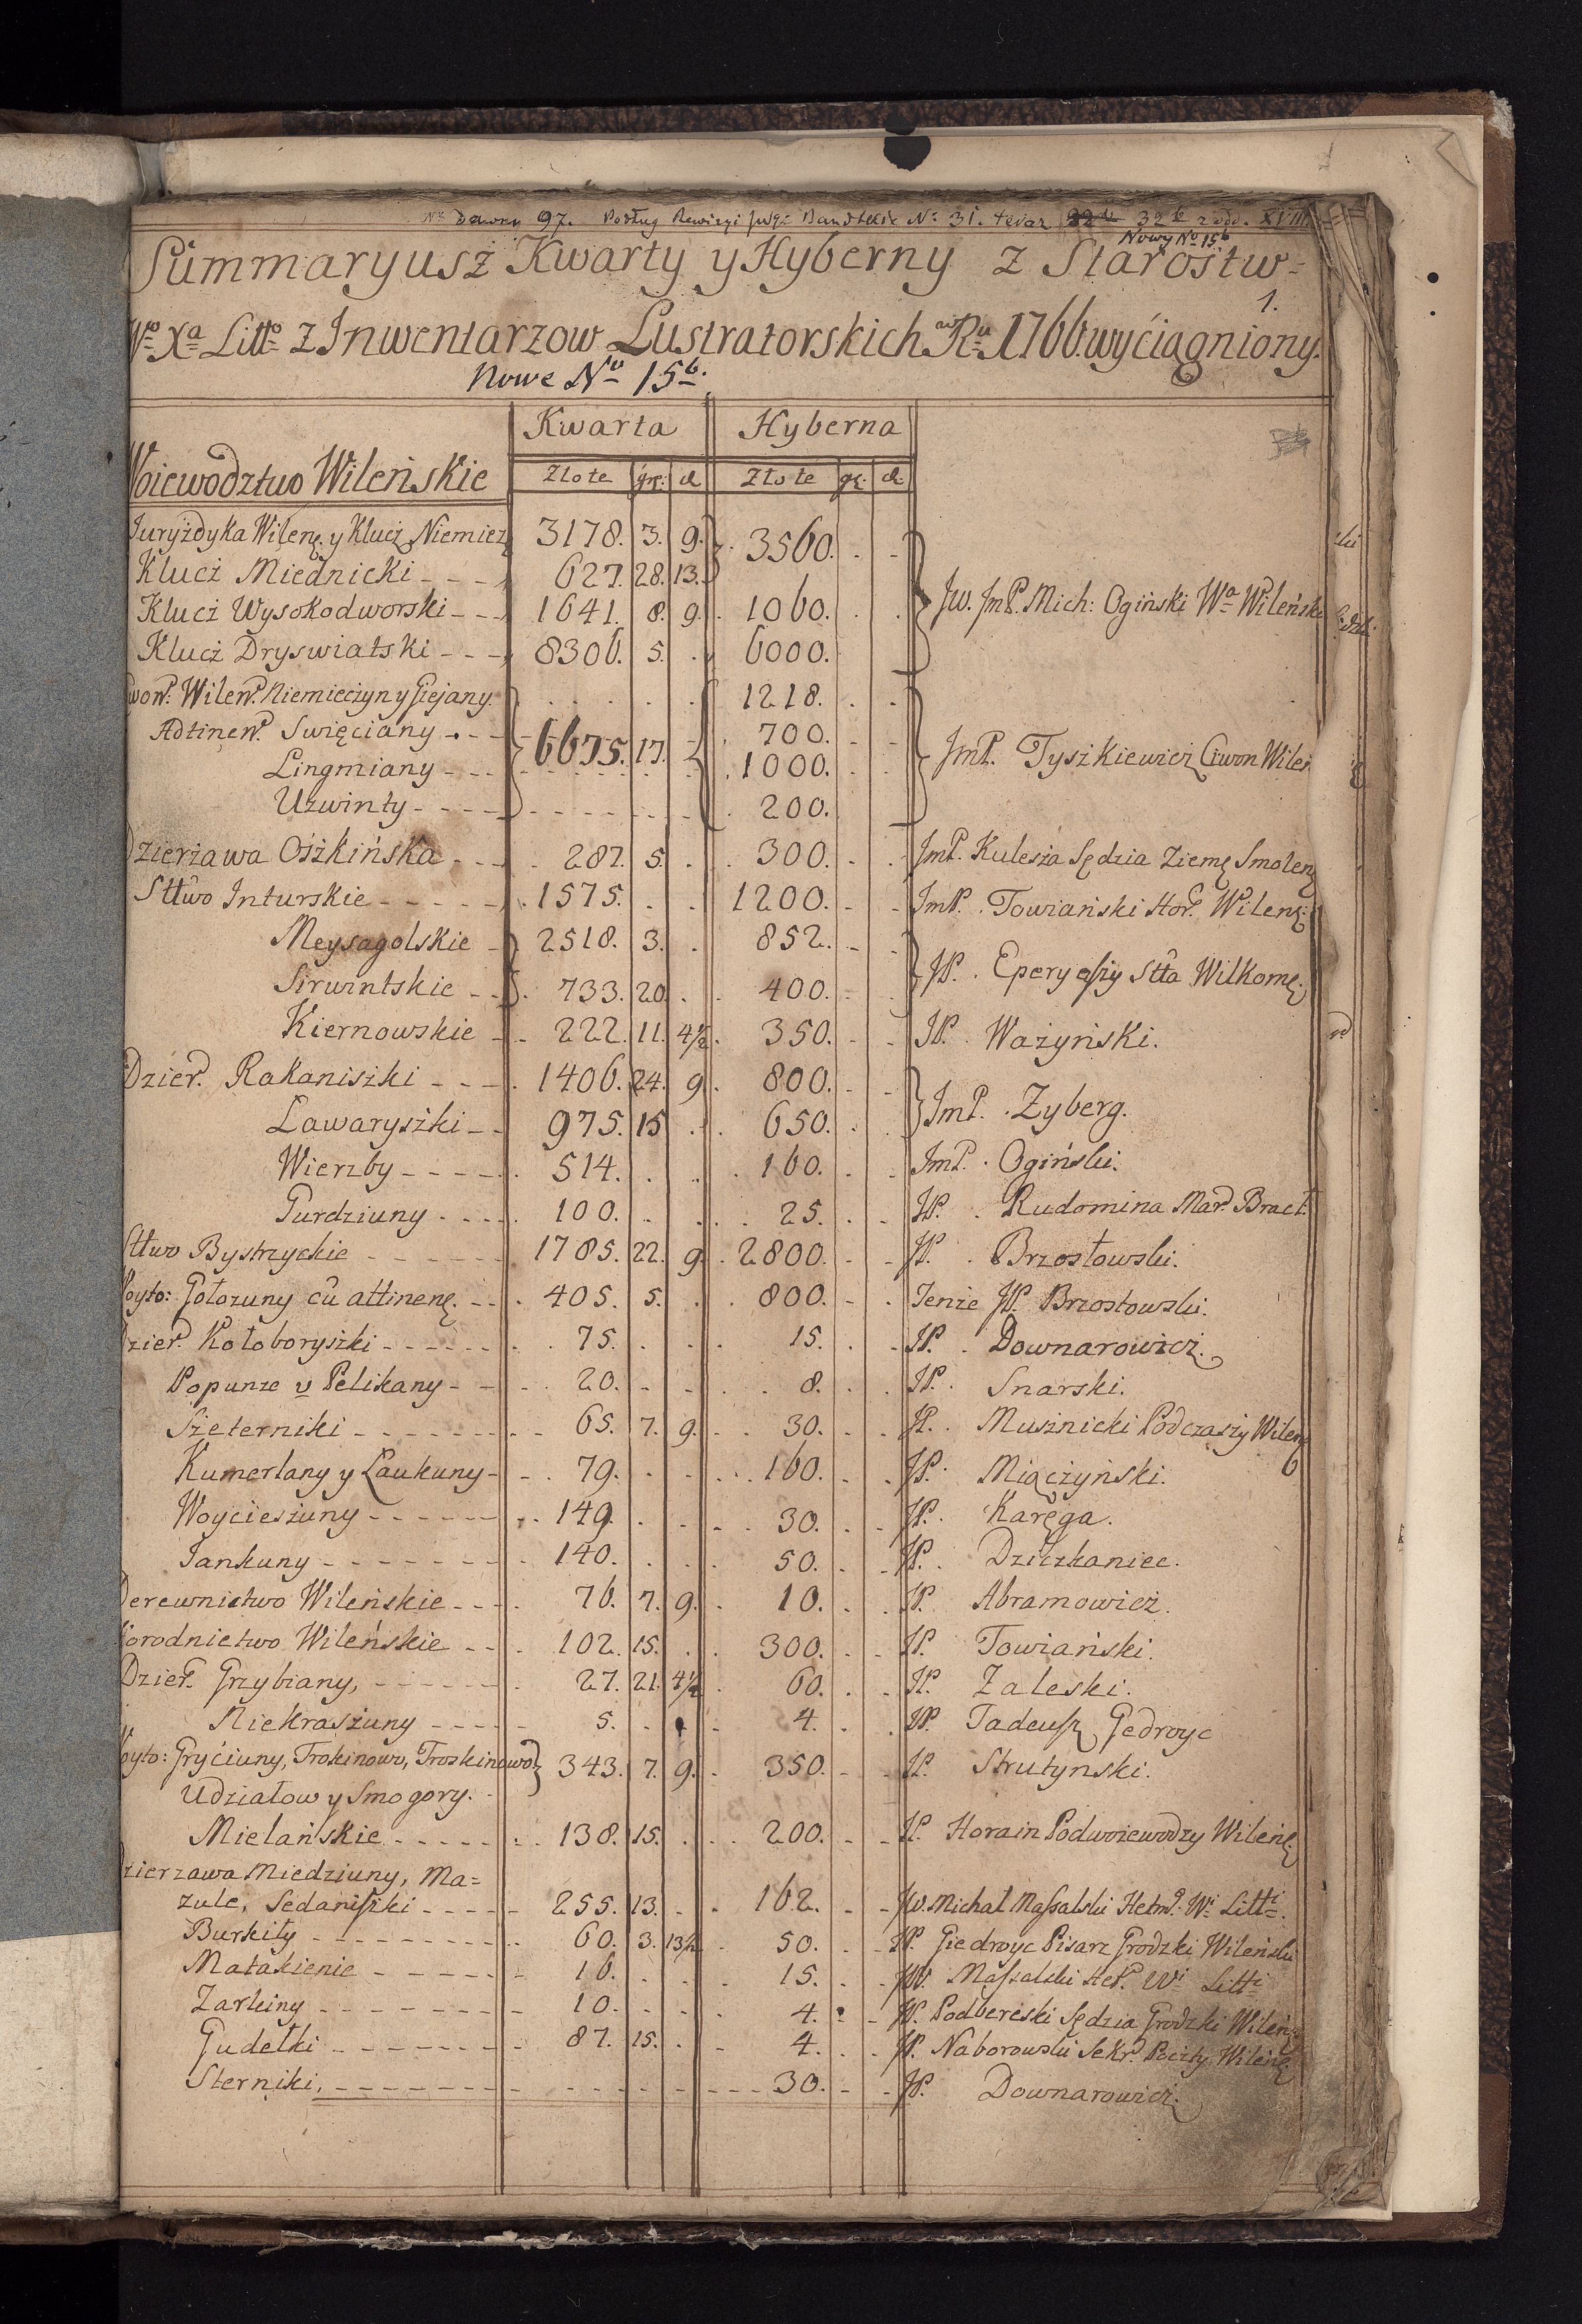 No dawny 97. Podług Rewizyi No 31. teraz 32
Nowy No 15b
Summaryusz Kwarty y Hyberny z Starostw=
1.
Wo Xa Litto z Inwentarzow Lustratorskich Ru 1766. wyciągniony.
Nowe No 15b.
Kwarta Hyberna
Woiewodztwo Wileńskie Złote gr: d Złote gr. d.
Juryzdyka Wileng. y Klucz Niemiez 3178. 3. 9. 3560.
Klucz Miednicki 627. 28. 13.
Jw. JmP. Mich: Ogiński Wa Wileński
Klucz Wysokodworski 1641. 8. 9. 1060.
Klucz Dryswiatski 8306. 5. 6000.
Wilen. Niemieczyn y Giejany. 1218.
Adtinen. Swięciany 6675. 17. 700.
JmP. Tyszkiewicz Ciwon Wilen
Lingmiany 1000.
Uzwinty 200.
Dzierzawa Oszkińska 287. 5. 300. JmP. Kulesza Sędzia Ziemg Smoleng
Sttwo Inturskie 1575. 1200. JmP. Towiański Hor. Wileng.
Meysagolskie 2518. 3. 852.
JP. Eperyeszy Stta Wilkomg.
Sirwintskie 733. 20. 400.
Kiernowskie 222. 11. 4½. 350. JP. Ważyński.
Dzier. Rakaniszki 1406. 24. 9. 800.
JmP. Zyberg.
Ławaryszki 975. 15 650.
Wierzby 514. 160. JmP. Ogiński.
Purdziuny 100. 25. JP. Rudomina Mar. Bracł.
Sttwo Bystrzyckie 1785. 22. 9. 2800. JP. Brzostowski.
Woyto: Gołozuny cu attineng. 405. 5. 800. Tenże JP. Brzostowski.
Dzier. Kołoboryszki 75. 15. JP. Downarowicz.
Popunze v Pelikany 20. 8. JP. Snarski.
Szeterniki 65. 7. 9. 30. JP. Musznicki Podczaszy Wileng
Kumerlany y Łaukuny 79. 160. JP. Miączyński.
Woycieszuny 149. 30. JP. Karęga.
Jankuny 140. 50. JP. Dziczkaniec.
Derewnictwo Wileńskie 76. 7. 9. 10. JP. Abramowicz.
Horodnictwo Wileńskie 102. 15. 300. JP. Towiański.
Dzier. Grzybiany, 27. 21. 4½ 60. JP. Zaleski.
Niekraszuny 5. 4. JP. Tadeusz Gedroyc
Woyto: Gryciuny, Trokinowo, Troskinowo 343. 7. 9. 350. JP. Strutynski.
Udziałow y Smogory.
Mielańskie 138. 15. 200. JP. Horain Podwoiewodzy Wileng
Dzierzawa Miedziuny, Ma=
zule, Sedaniszki 255. 13. 162. Jw. Michał Massalski Hetm. Wi Litti.
Burkiły 60. 3. 13½ 50. JP. Giedroyc Pisarz Grodzki Wileński
Matakienie 16. 15. JW. Massalski Het. Wi Litti
Zarkiny 10. 4. JP. Podbereski Sędzia Grodzki Wileng
Gudełki 87. 15. 4. JP. Naborowski Sekr. Poczty Wileng
Sterniki, 30. JP. Downarowicz.